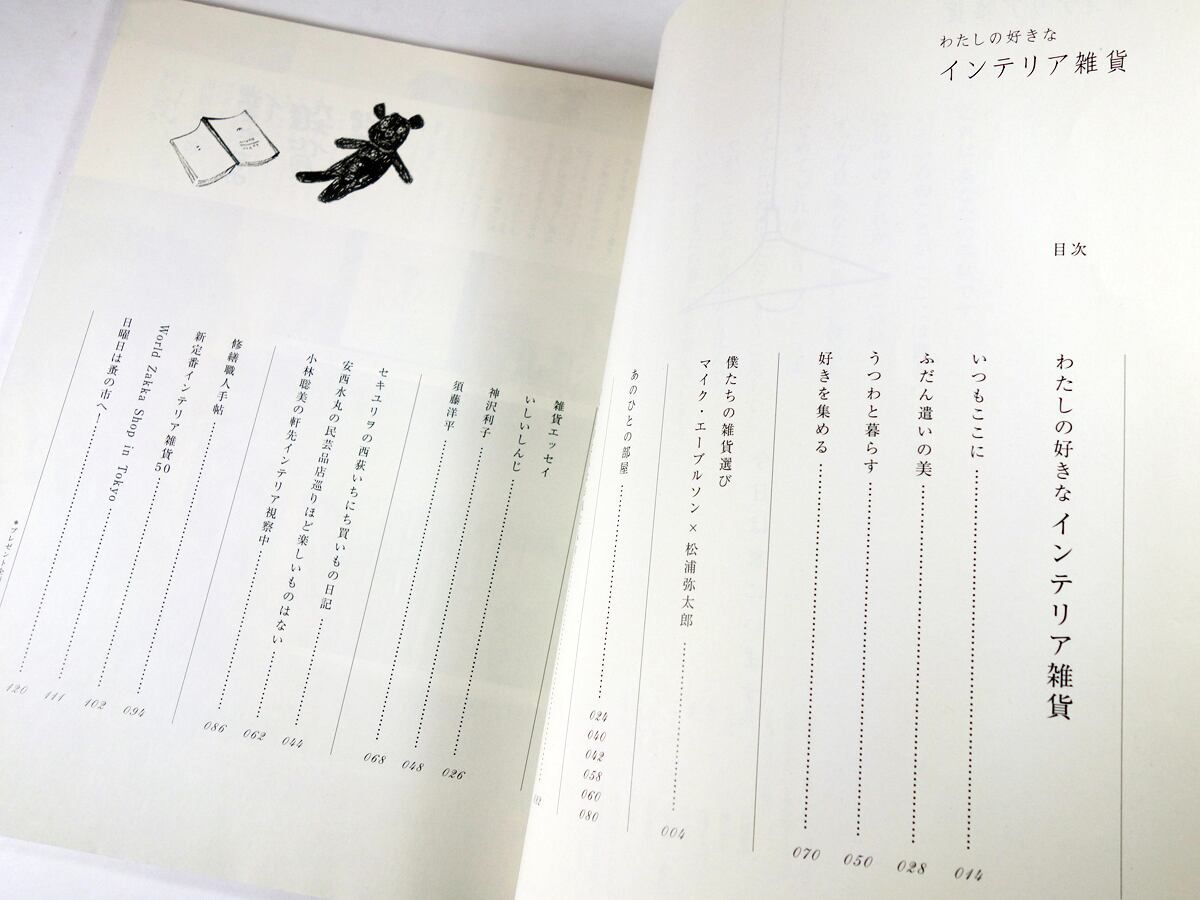 わたしの好きな
インテリア雑貨
目次
わたしの好きな インテリア雑貨
いつもここに……014
ふだん遣いの美……028
うつわと暮らす……050
好きを集める……070
僕たちの雑貨選び
マイク・エーブルソン × 松浦弥太郎……004
あのひとの部屋……024
040
042
058
060
080
雑貨エッセイ
いしいしんじ……026
神沢利子……048
須藤洋平……068
セキユリヲの西荻いちにち買いもの日記……044
安西水丸の民芸品店巡りほど楽しいものはない……062
小林聡美の軒先インテリア視察中……086
修繕職人手帖……094
新定番インテリア雑貨50……102
World Zakka Shop in Tokyo……111
日曜日は蚤の市へ……120
*プレゼント